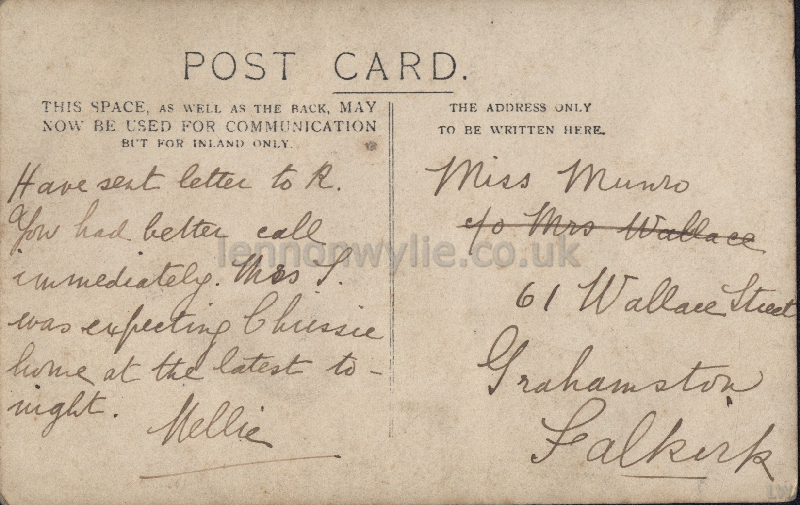 POST CARD.
THIS SPACE, AS WELL AS THE BACK, MAY
NOW BE USED FOR COMMUNICATION
BUT FOR INLAND ONLY.
Have sent letter to R.
You had better call
immediately. Mrs S.
was expecting Chrissie
home at the latest to-
night.
Nellie
THE ADDRESS ONLY
TO BE WRITTEN HERE.
Miss Munro
c/o Mrs Wallace
61 Wallace Street
Grahamston
Falkirk
lennonwylie.co.uk
LW